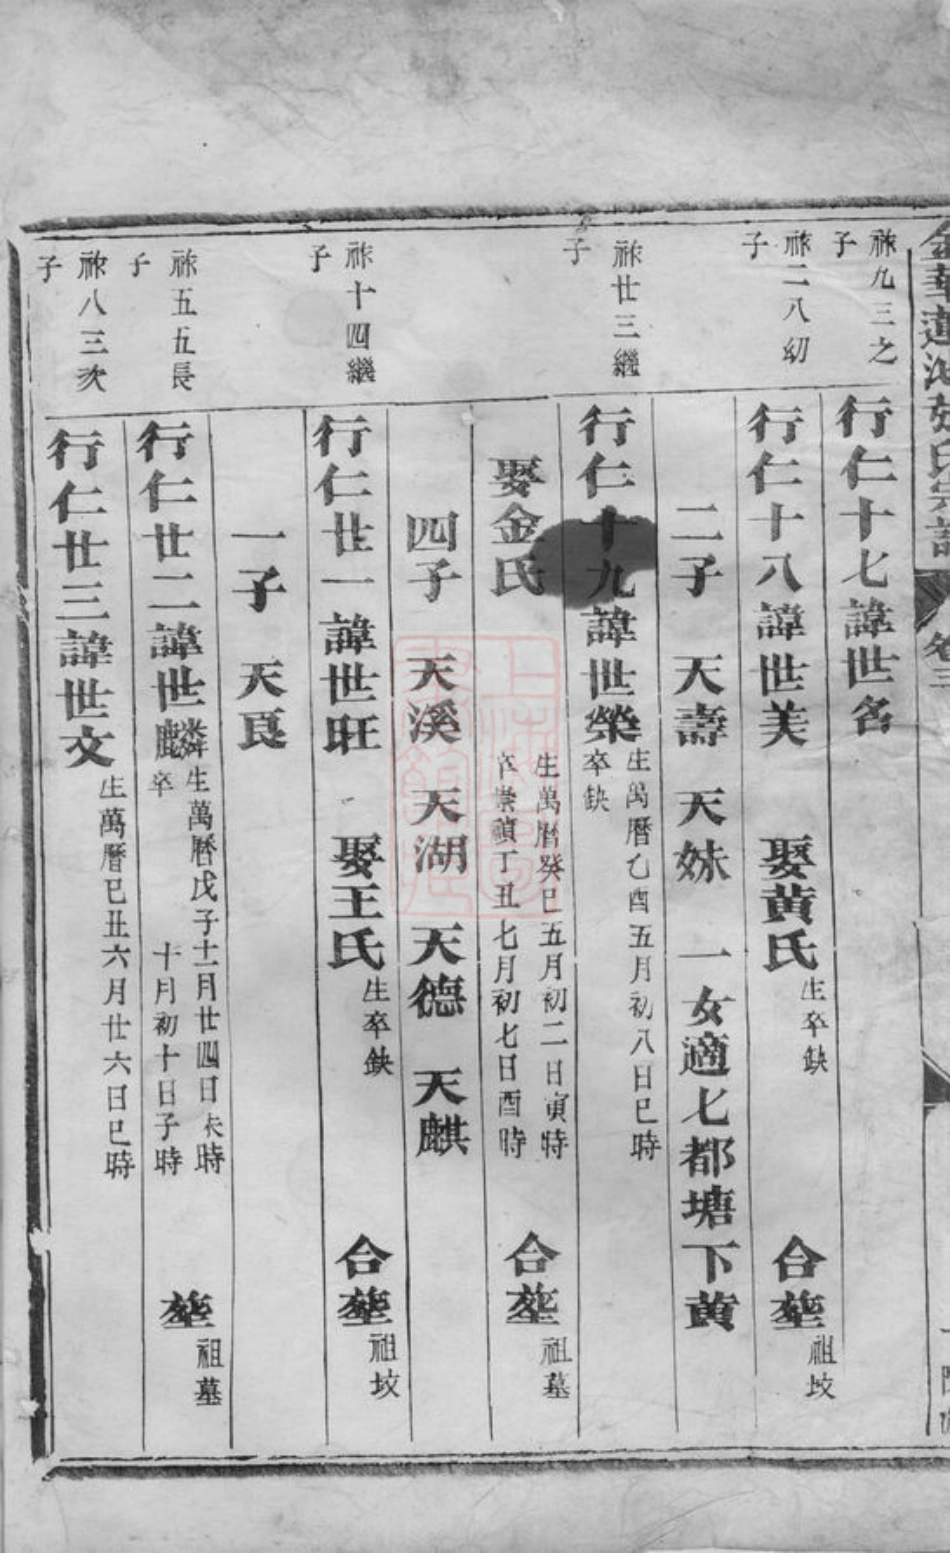 祚九三之子
行仁十七諱世名
祚二八幼子
行仁十八諱世美 娶黃氏 生卒缺 合塟 祖坟
二子 天壽 天妹 一女適七都塘下黃
祚廿三繼子
行仁十九諱世榮 生萬曆乙酉五月初八日巳時 卒缺
娶金氏 生萬曆癸巳五月初二日寅時 卒崇禎丁丑七月初七日酉時 合塟 祖墓
四子 天溪 天湖 天德 天麒
祚十四繼子
行仁廿一諱世旺 娶王氏 生卒缺 合塟 祖坟
一子 天良
祚五五長子
行仁廿二諱世麟 生萬曆戊子十一月廿四日未時 卒 十月初十日子時 塟 祖墓
祚八三次子
行仁廿三諱世文 生萬曆己丑六月廿六日巳時